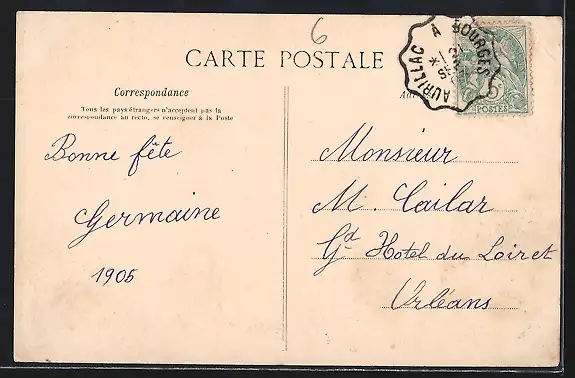 6
CARTE POSTALE
AURILLAC A BOURGES
5c
POSTES
Correspondance
Tous les pays étrangers n'acceptent pas la
correspondance au recto, se renseigner à la Poste
Bonne fête
Germaine
1905
Monsieur
M. Cailar
Gd Hotel du Loiret
Orléans